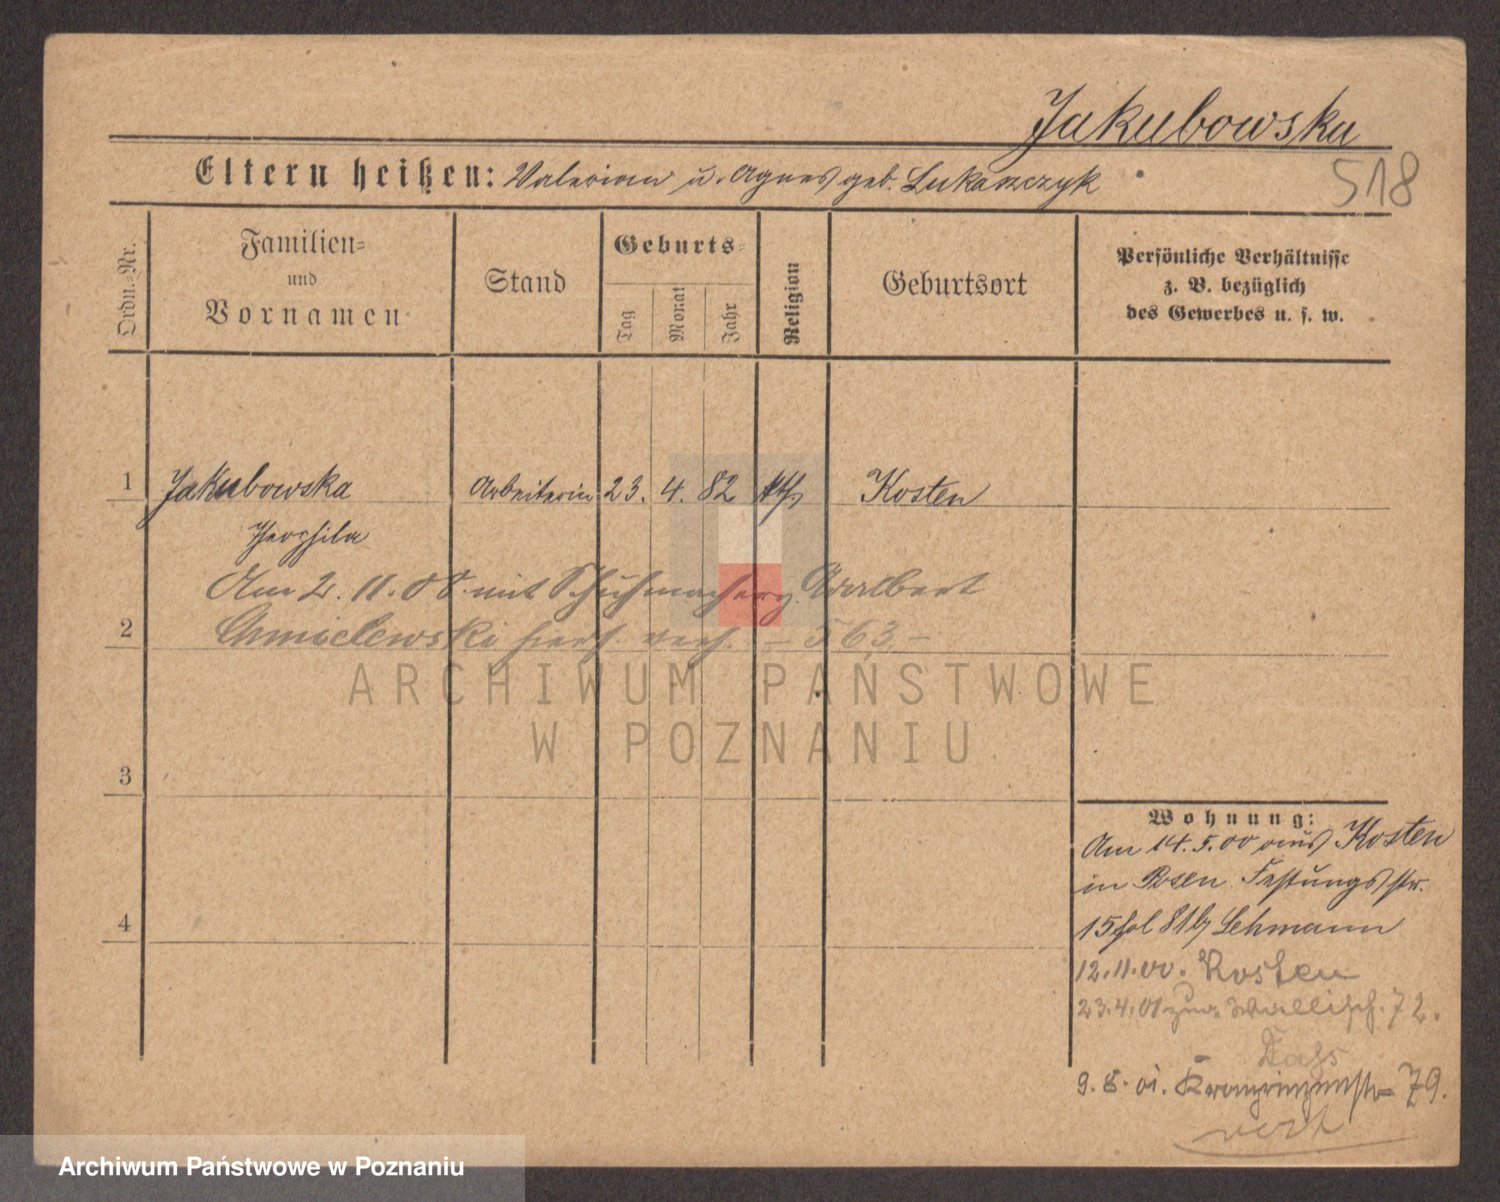 Jakubowska
Eltern heißen: Valerian u. Agnes geb. Lukaszczyk
518
Ordn.-Nr.
Familien-
und
Vornamen
Stand
Geburts-
Tag
Monat
Jahr
Religion
Geburtsort
Persönliche Verhältnisse
z. B. bezüglich
des Gewerbes u. s. w.
1 Jakubowska Arbeiterin 23. 4. 82 kth. Kosten
Theophila
Am 2. 11. 08 mit Schuhmacherg. Adalbert
2 Chmielewski hier verh. - 563 -
ARCHIWUM PAŃSTWOWE
W POZNANIU
3
4
Wohnung:
Am 14.5.00 aus Kosten
in Posen Festungsstr.
15 Lehmann
12.11.00. Kosten
23.4.01 zur. Wallisch. 72.
9.5.01. Kronprinzenstr 79.
Archiwum Państwowe w Poznaniu